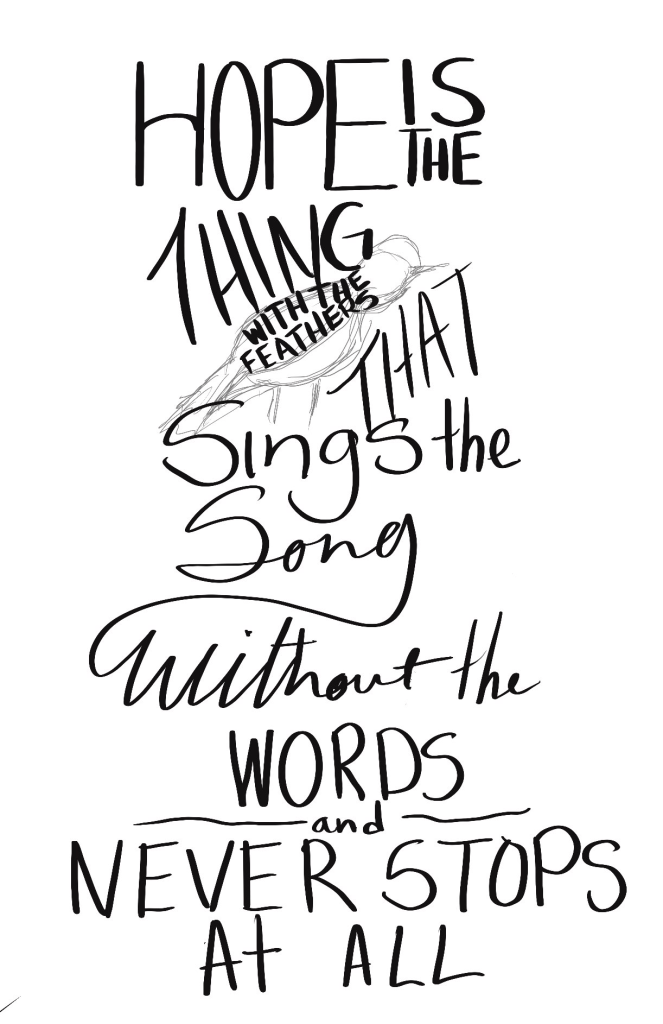 HOPE IS
THE
THING
WITH THE
FEATHERS
THAT
Sings the
Song
Without the
WORDS
and
NEVER STOPS
At ALL